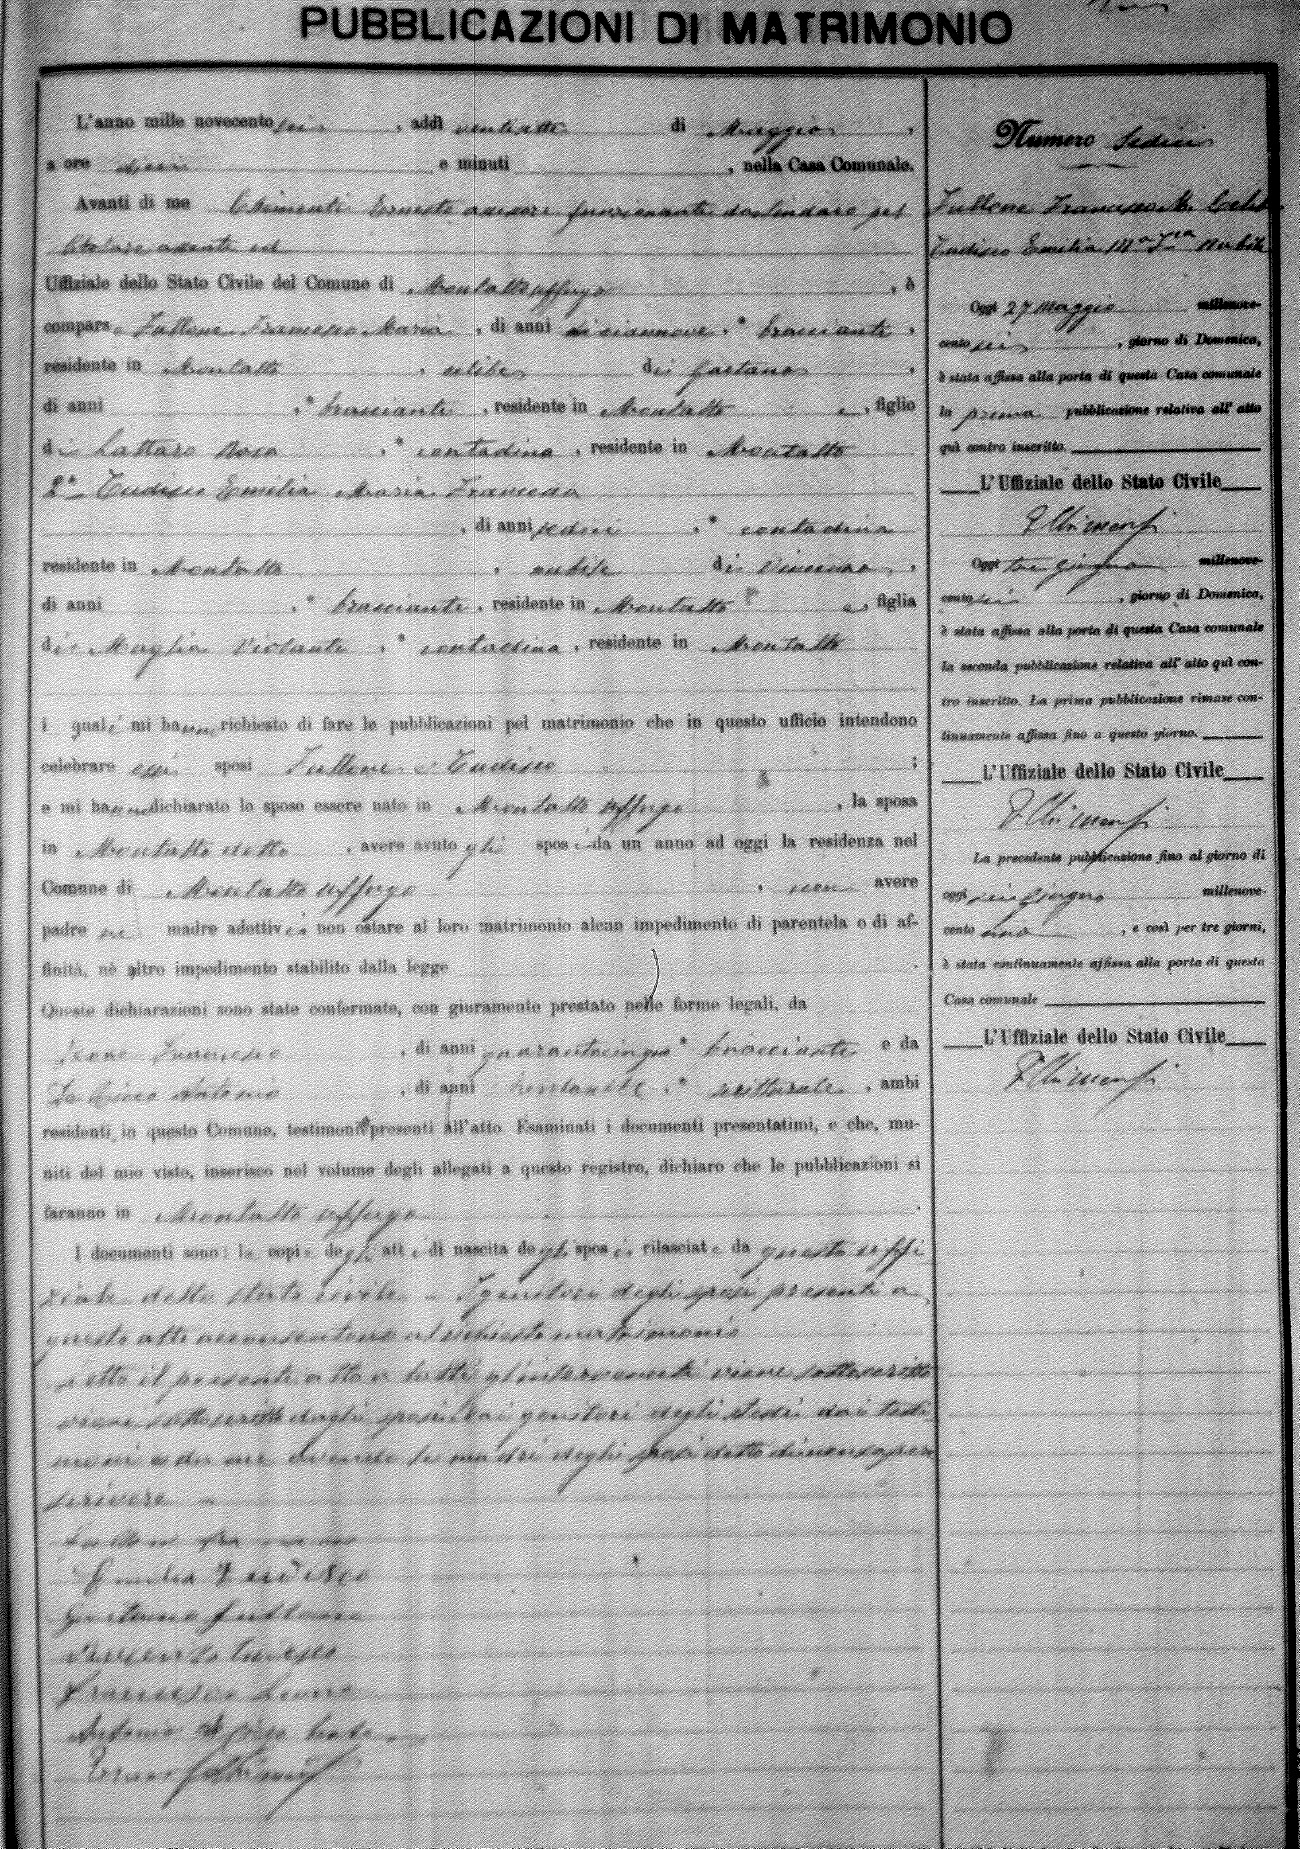 PUBBLICAZIONI DI MATRIMONIO
L'anno mille novecento sei, addì ventiotto di Maggio,
a ore dieci e minuti , nella Casa Comunale.
Avanti di me Chimenti Ernesto assessore funzionante da sindaco pel
titolare assente ed
Uffiziale dello Stato Civile del Comune di Montalto Uffugo, è
comparso Fullone Francesco Maria, di anni diciannove, bracciante,
residente in Montalto, celibe di Gaetano,
di anni , bracciante, residente in Montalto e, figlio
di Lattaro Rosa, contadina, residente in Montalto
2° Tudisco Emilia Maria Francesca
, di anni sedici, contadina
residente in Montalto, nubile di Vincenzo,
di anni , bracciante, residente in Montalto e, figlia
di Maglia Violante, contadina, residente in Montalto
i quali mi hanno richiesto di fare le pubblicazioni pel matrimonio che in questo ufficio intendono
celebrare essi sposi Fullone e Tudisco ;
e mi hanno dichiarato lo sposo essere nato in Montalto Uffugo, la sposa
in Montalto detto, avere avuto gli sposi da un anno ad oggi la residenza nel
Comune di Montalto Uffugo, non avere
padre nè madre adottivi e non ostare al loro matrimonio alcun impedimento di parentela o di af-
finità, nè altro impedimento stabilito dalla legge .
Queste dichiarazioni sono state confermate, con giuramento prestato nelle forme legali, da
Francesco, di anni quarantacinque bracciante e da
Antonio, di anni , scritturale, ambi
residenti in questo Comune, testimoni presenti all'atto. Esaminati i documenti presentatimi, e che, mu-
niti del mio visto, inserisco nel volume degli allegati a questo registro, dichiaro che le pubblicazioni si
faranno in Montalto Uffugo .
I documenti sono: le copie degli atti di nascita degli sposi rilasciate da questo uffi
ziale dello stato civile. I genitori degli sposi presenti a
questo atto acconsentono al richiesto matrimonio
Letto il presente atto a tutti gl'intervenuti viene sottoscritto
viene sottoscritto dagli sposi dai genitori degli stessi dai testi
moni e da me avendo le madri degli sposi detto di non sapere
scrivere
Emilia Tudisco
Gaetano Fullone
Vincenzo Tudisco
Francesco
Antonio
Numero Sedici
Fullone Francesco M. Celibe
Tudisco Emilia Mª Fca nubile
Oggi 27 Maggio millenove-
cento sei, giorno di Domenica,
è stata affissa alla porta di questa Casa comunale
la prima pubblicazione relativa all'atto
quì contro inscritto.
L'Uffiziale dello Stato Civile
E Chimenti
Oggi tre giugno millenove-
cento sei, giorno di Domenica,
è stata affissa alla porta di questa Casa comunale
la seconda pubblicazione relativa all'atto quì con-
tro inscritto. La prima pubblicazione rimase con-
tinuamente affissa fino a questo giorno.
L'Uffiziale dello Stato Civile
E Chimenti
La precedente pubblicazione fino al giorno di
oggi sei giugno millenove-
cento , e così per tre giorni,
è stata continuamente affissa alla porta di questa
Casa comunale
L'Uffiziale dello Stato Civile
E Chimenti